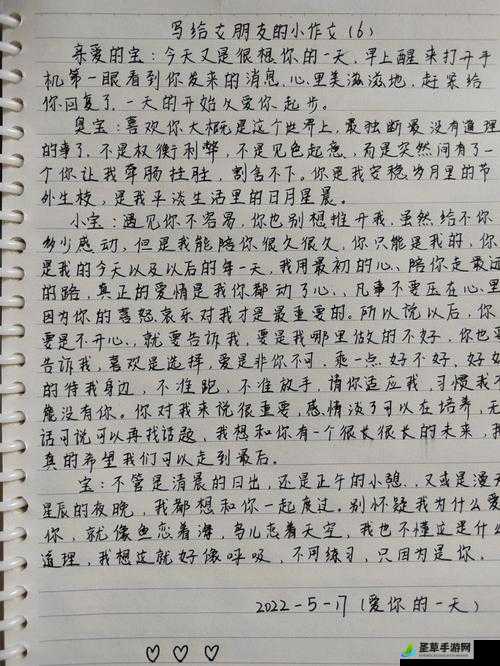 写给女朋友的小作文(6)
亲爱的宝:今天又是很想你的一天,早上醒来打开手
机第一眼看到你发来的消息,心里美滋滋地,赶紧给
你回复了,一天的开始久爱你起步。
臭宝:喜欢你大概是这个世界上,最独断最没有道理
的事了,不是权衡利弊,不是见色起意,而是突然间有了一
个你让我牵肠挂肚,割舍不下。你是我安稳岁月里的节
外生枝,是我平淡生活里的日月星晨。
小宝:遇见你不容易,你也别想推开我,虽然给不你
多少感动,但是我能陪你很久很久,你只能是我的,你
是我的今天以及以后的每一天,我用最初的心、陪你走最远
的路,真正的爱情是我你都动了心、凡事不要压在心里
因为你的喜怒哀乐对我才是最重要的。所以说以后,你
要是不开心,就要告诉我,要是我哪里做的不好,你也要
告诉我,喜欢是选择,爱是非你不可,乘一点好不好、好好
的待我身边,不准跑,不准放手,请你适应我,习惯我
能没有你。你对我来说很重要,感情淡了可以在培养,无
话可说可以再找话题,我想和你有一个很长很长的未来,我
真的希望我们可以走到最后。
宝:不管是清晨的日出,还是正午的小憩、又或是漫天
星辰的夜晚,我都想和你一起度过。别怀疑我为什么爱
你,就像鱼恋着海,鸟儿恋着天空,我也不懂这是什么
道理,我想这就好像呼吸,不用练习,只因为是你,
2022-5-17(爱你的一天)
圣草手游网